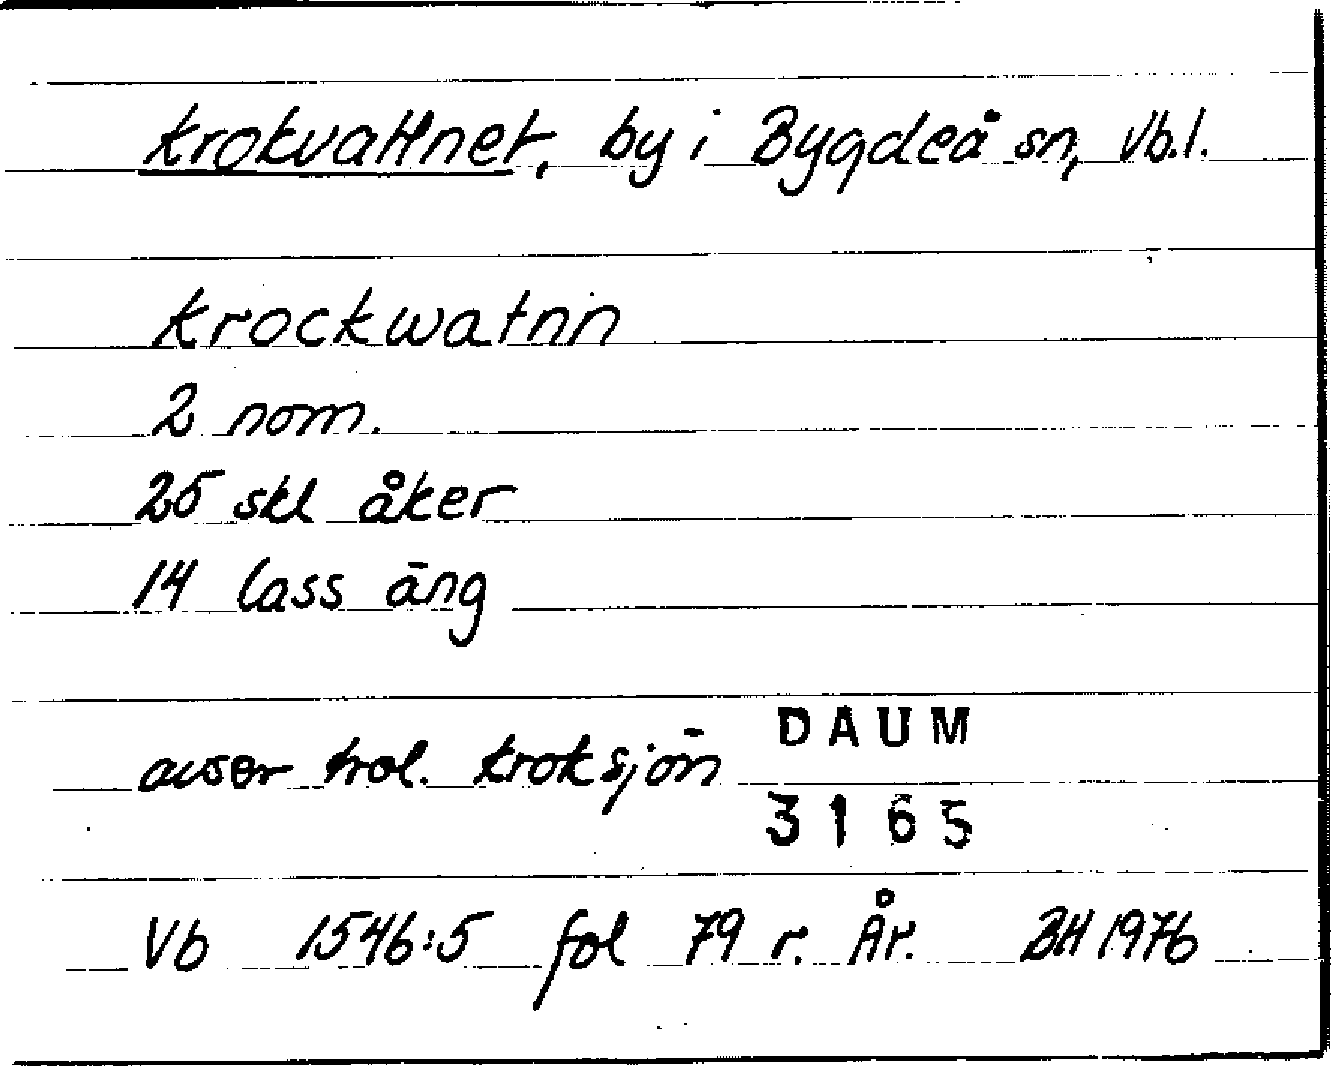 Krokvattnet, by i Bygdeå sn, Vb.l.
Krockwatnn
2 nom.
25 skl åker
14 lass äng
avser trol. Kroksjön
DAUM
3165
Vb 1546:5 fol 79 r. År. BH 1976